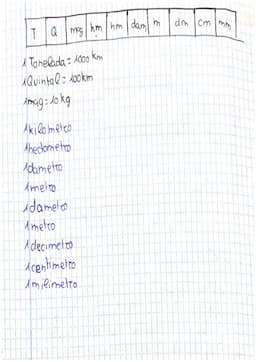 T Q mag hm hm dam m dm cm mm
1 Tonelada = 1000 km
1Quintal = 100km
1mag = 10 kg
1kilometro
1hedometro
1dametro
1metro
1dametro
1metro
1decimetro
1centimetro
1milimetro